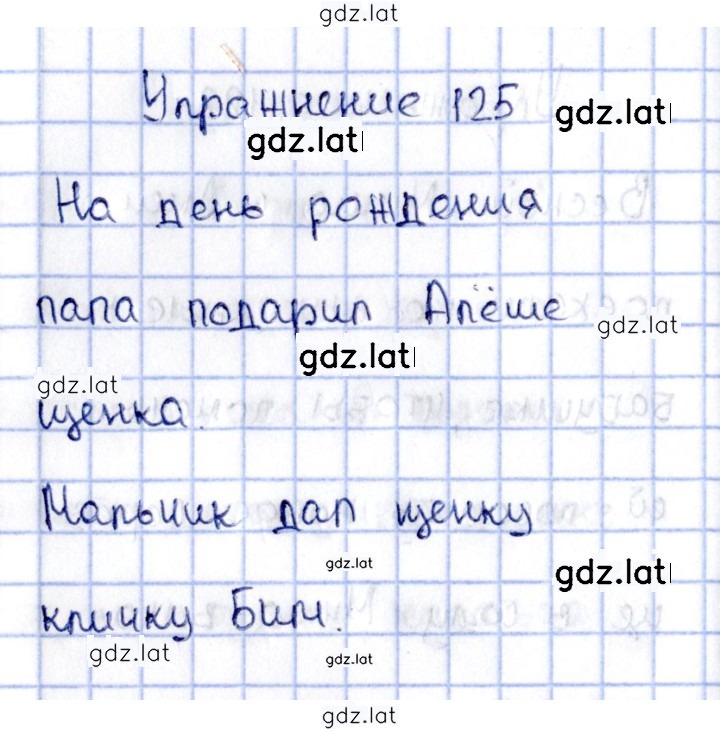 gdz.lat
Упражнение 125
gdz.lat
gdz.lat
На день рождения
папа подарил Алёше
gdz.lat
gdz.lat
gdz.lat
щенка.
Мальчик дал щенку
gdz.lat
gdz.lat
кличку Бим.
gdz.lat
gdz.lat
gdz.lat